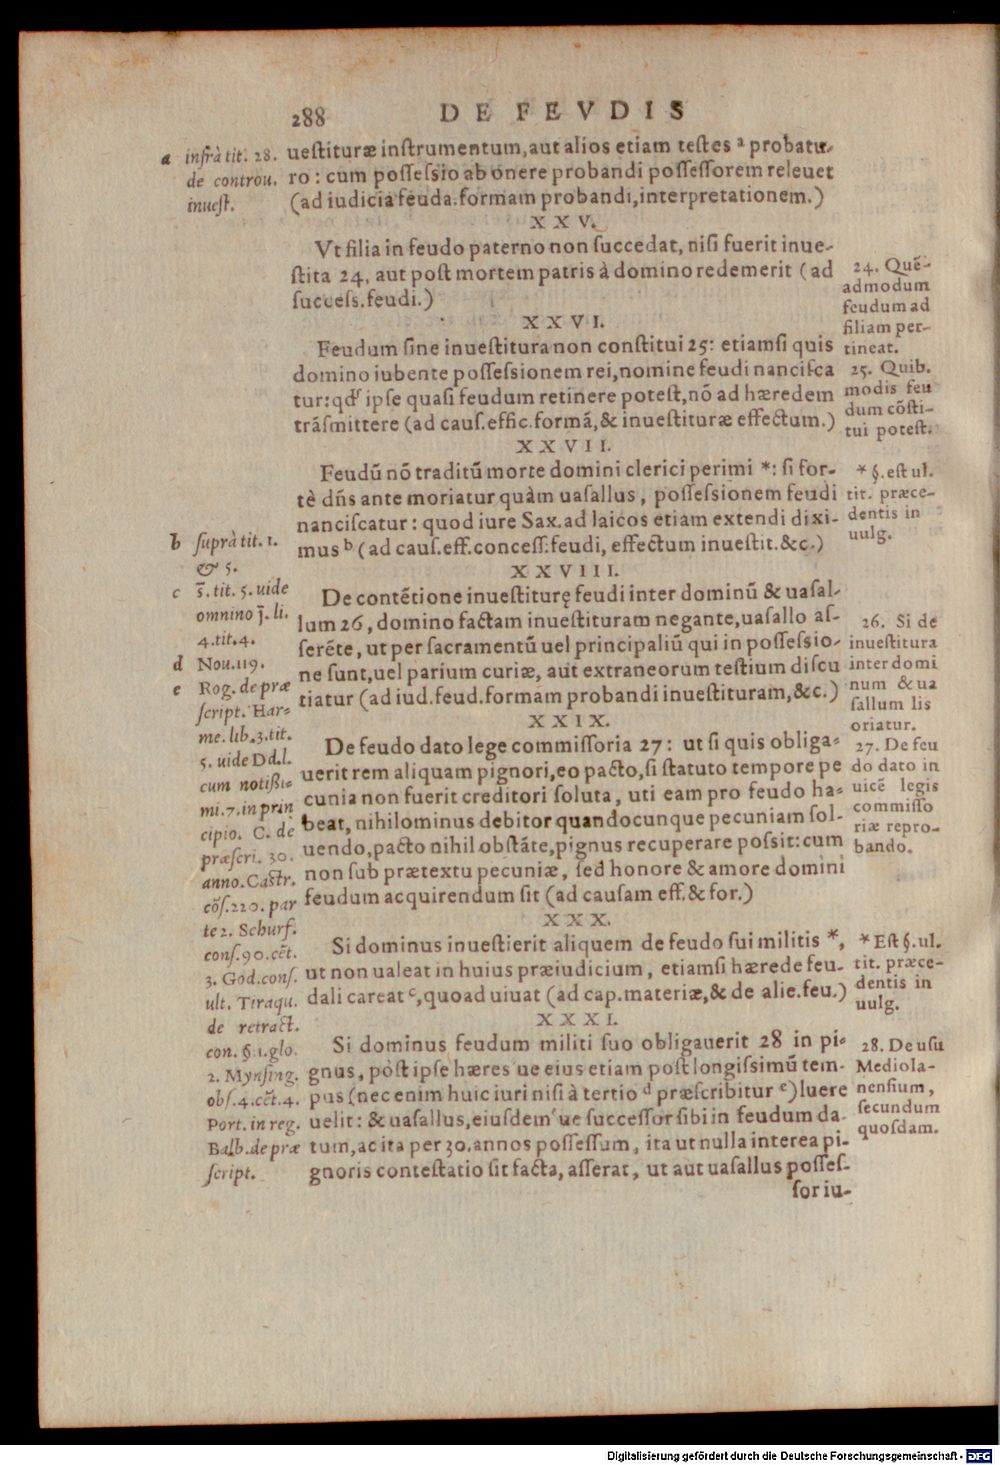 288 DE FEVDIS
uestituræ instrumentum, aut alios etiam testes ᵃ probatu-
ro: cum possessio ab onere probandi possessorem releuet
(ad iudicia feuda. formam probandi, interpretationem.)
XXV.
Vt filia in feudo paterno non succedat, nisi fuerit inue-
stita 24, aut post mortem patris à domino redemerit (ad
success. feudi.)
XXVI.
Feudum sine inuestitura non constitui 25: etiamsi quis
domino iubente possessionem rei, nomine feudi nancisca
tur: qd' ipse quasi feudum retinere potest, nõ ad hæredem
trãsmittere (ad caus. effic. formã, & inuestituræ effectum.)
XXVII.
Feudũ nõ traditũ morte domini clerici perimi *: si for-
tè dñs ante moriatur quàm uasallus, possessionem feudi
nanciscatur: quod iure Sax. ad laicos etiam extendi dixi-
mus ᵇ (ad caus. eff. concess. feudi, effectum inuestit. &c.)
XXVIII.
De contẽtione inuestiturę feudi inter dominũ & uasal-
lum 26, domino factam inuestituram negante, uasallo as-
serẽte, ut per sacramentũ uel principaliũ qui in possessio-
ne sunt, uel parium curiæ, aut extraneorum testium discu
tiatur (ad iud. feud. formam probandi inuestituram, &c.)
XXIX.
De feudo dato lege commissoria 27: ut si quis obliga-
uerit rem aliquam pignori, eo pacto, si statuto tempore pe
cunia non fuerit creditori soluta, uti eam pro feudo ha-
beat, nihilominus debitor quandocunque pecuniam sol-
uendo, pacto nihil obstãte, pignus recuperare possit: cum
non sub prætextu pecuniæ, sed honore & amore domini
feudum acquirendum sit (ad causam eff. & for.)
XXX.
Si dominus inuestierit aliquem de feudo sui militis *,
ut non ualeat in huius præiudicium, etiamsi hærede feu-
dali careat ᶜ, quoad uiuat (ad cap. materiæ, & de alie. feu.)
XXXI.
Si dominus feudum militi suo obligauerit 28 in pi-
gnus, pòst ipse hæres ue eius etiam post longissimũ tem-
pus (nec enim huic iuri nisi à tertio ᵈ præscribitur ᵉ) luere
uelit: & uasallus, eiusdem ue successor sibi in feudum da-
tum, ac ita per 30. annos possessum, ita ut nulla interea pi-
gnoris contestatio sit facta, asserat, ut aut uasallus posses-
sor iu-
a infrà tit. 28.
de controu.
inuest.
b suprà tit. 1.
& 5.
c s̃. tit. 5. uide
omnino j̃. li.
4. tit. 4.
d Nou. 119.
e Rog. de præ
script. Har-
me. lib. 3. tit.
5. uide Dd. l.
cum notißi-
mi. 7. in prin
cipio. C. de
præscri. 30.
anno. Castr.
cõs. 220. par
te 2. Schurf.
cons. 90. cẽt.
3. God. cons.
ult. Tiraqu.
de retract.
con. §. 1. glo.
2. Mynsing.
obs. 4. cẽt. 4.
Port. in reg.
Balb. de præ
script.
24. Quẽ-
admodum
feudum ad
filiam per-
tineat.
25. Quib.
modis feu
dum cõsti-
tui potest.
* §. est ul.
tit. præce-
dentis in
uulg.
26. Si de
inuestitura
inter domi
num & ua
sallum lis
oriatur.
27. De feu
do dato in
uicẽ legis
commisso
riæ repro-
bando.
* Est §. ul.
tit. præce-
dentis in
uulg.
28. De usu
Mediola-
nensium,
secundum
quosdam.
Digitalisierung gefördert durch die Deutsche Forschungsgemeinschaft - DFG